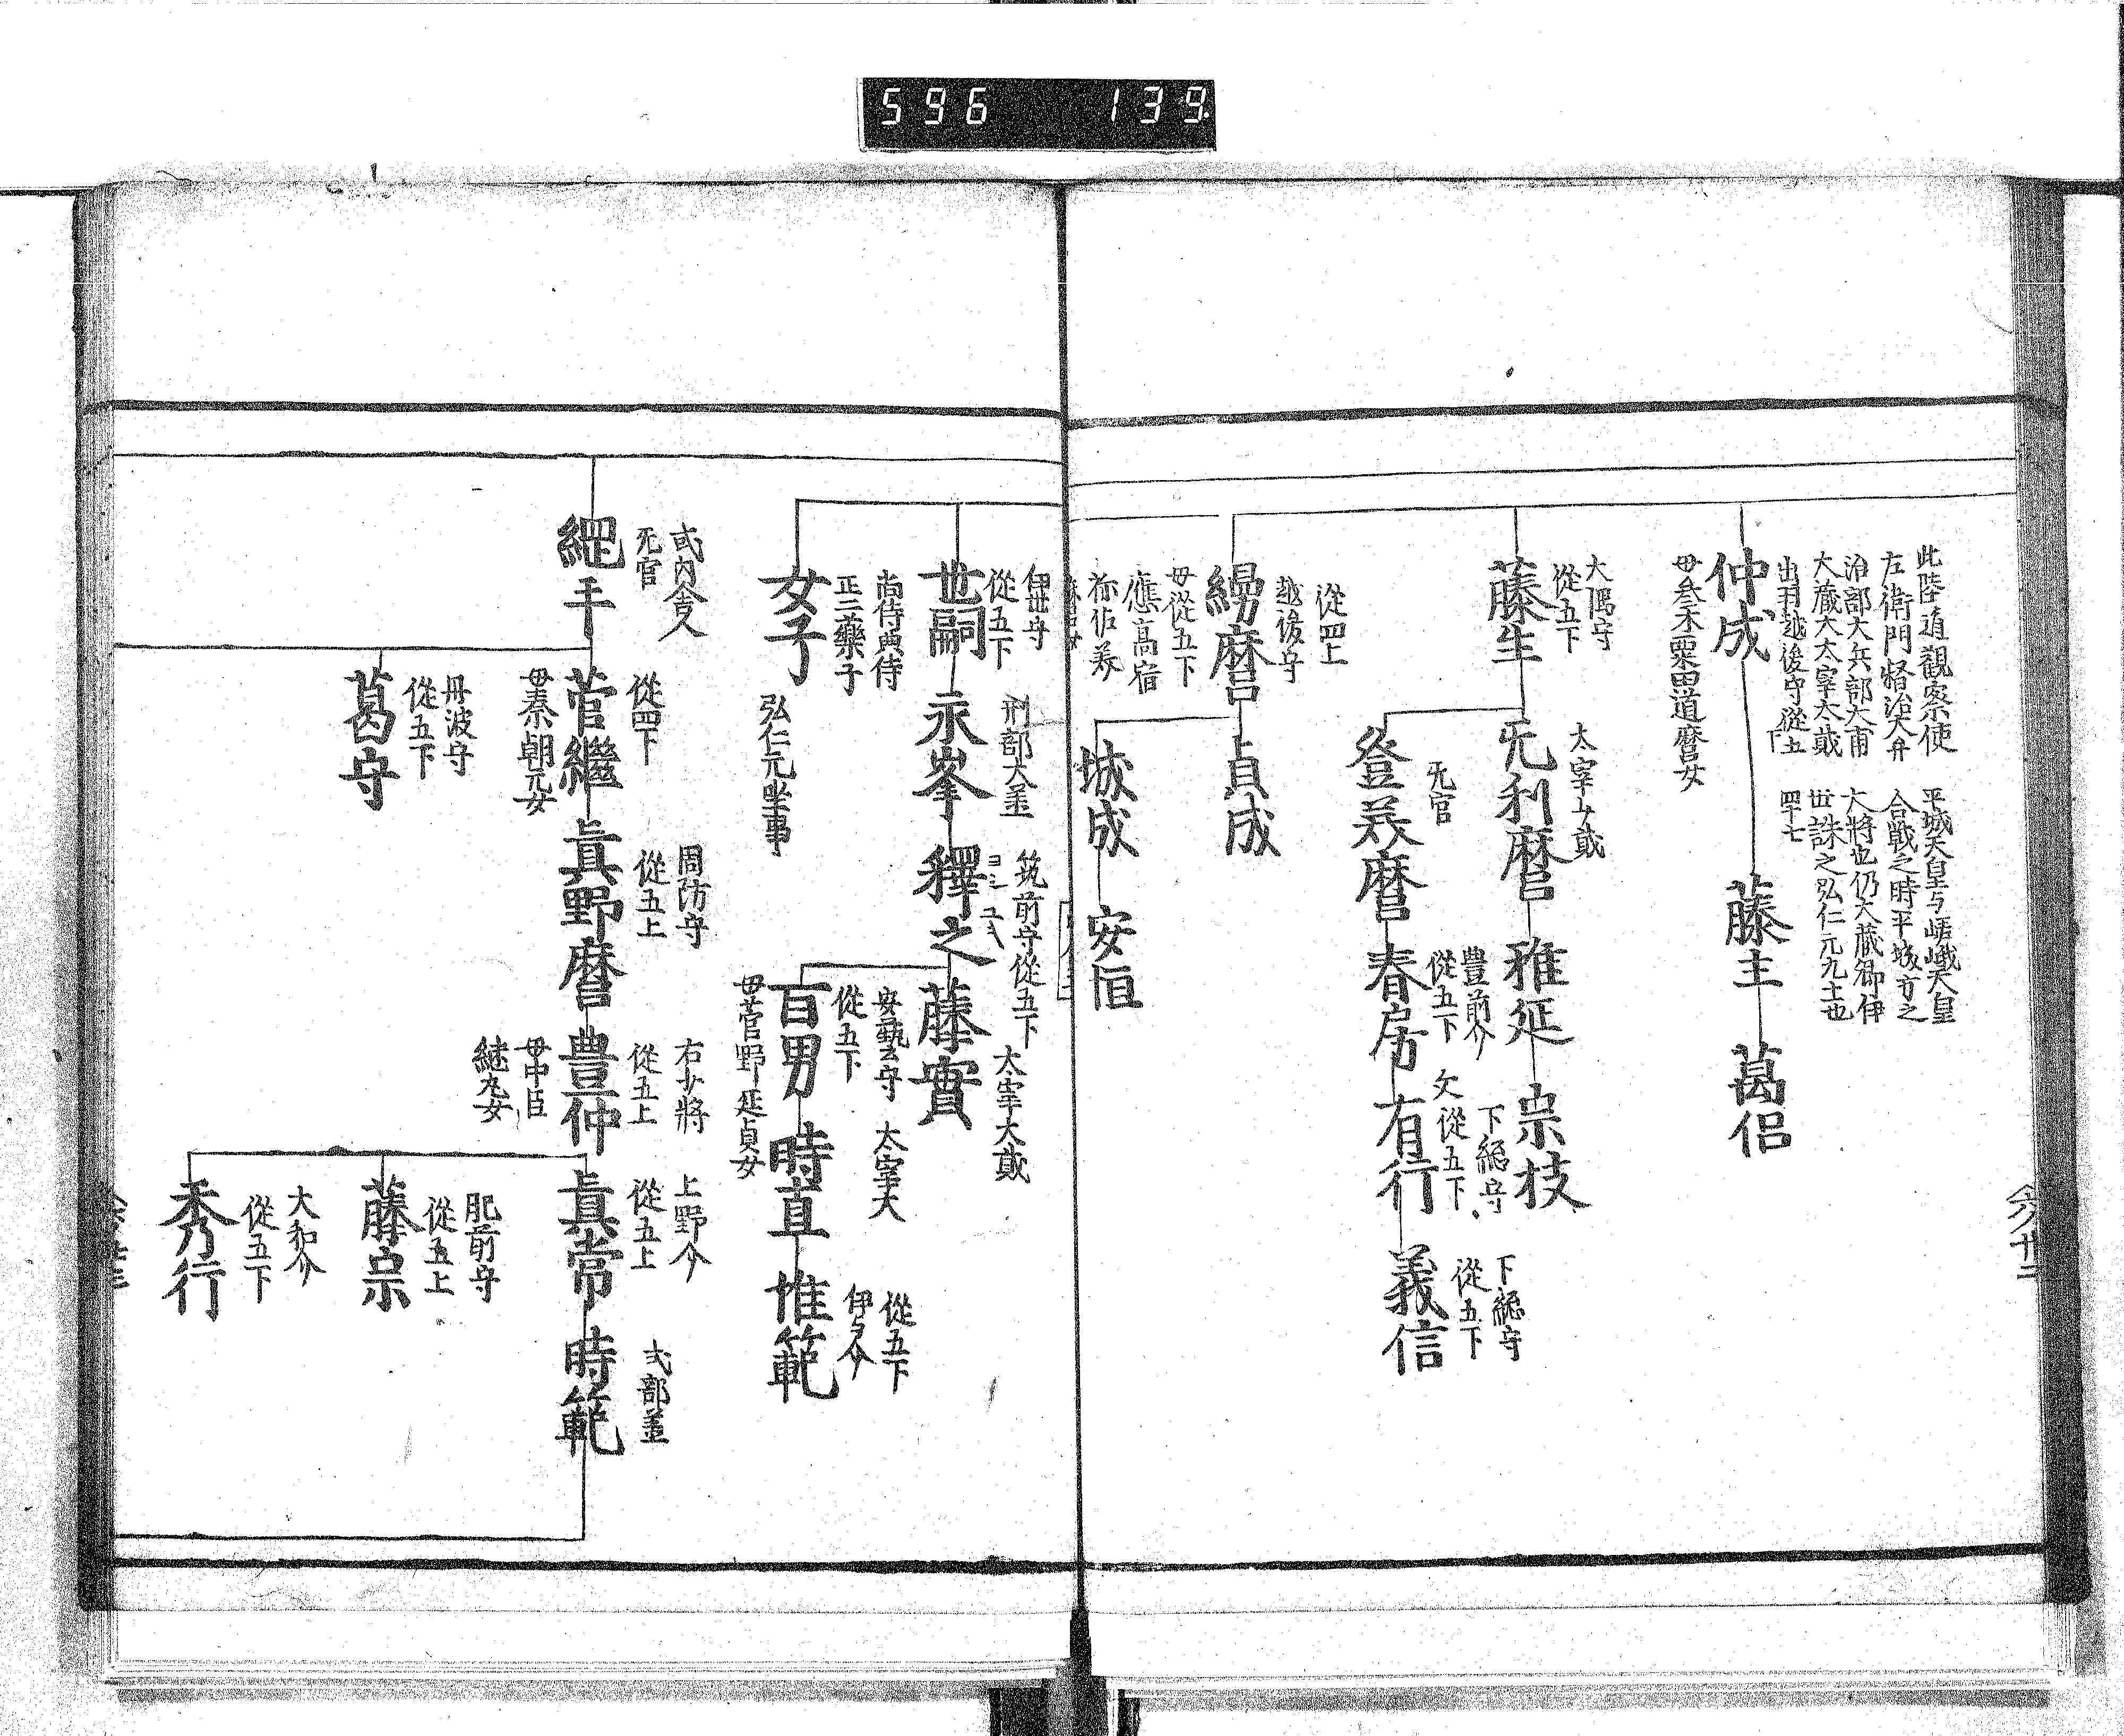 596 139
此陸道觀察使
左衛門督治大弁
治部大兵部大甫
大藏大太宰大貳
出羽越後守從五
下
平城天皇与嵯峨天皇
合戦之時平城方之
大將也仍大藏卿伊
世誅之弘仁元九土也
四十七
仲成
母参木粟田道麿女
藤主
葛侶
大隅守
從五下
藤生
太宰少貳
无利麿
雅延
宗枝
无官
登義麿
豊前介
從五下
春房
下総守
文從五下
有行
下総守
從五下
義信
從四上
越後守
縵麿
母從五下
應高宿
祢佐美
貞成
城成
安恒
伊世守
從五下
世嗣
刑部大丞
永峯
筑前守從五下
釋之
太宰大貳
藤實
安藝守
從五下
百男
母菅野延貞女
太宰大
時直
從五下
伊与介
惟範
尚侍典侍
正三藥子
女子
弘仁元坐事
或内舎人
无官
綱手
從四下
菅繼
母秦朝元女
周防守
從五上
眞野麿
右少將
從五上
豊仲
母中臣
継丸女
上野介
從五上
眞常
式部丞
時範
肥前守
從五上
藤宗
大和介
從五下
秀行
丹波守
從五下
葛守